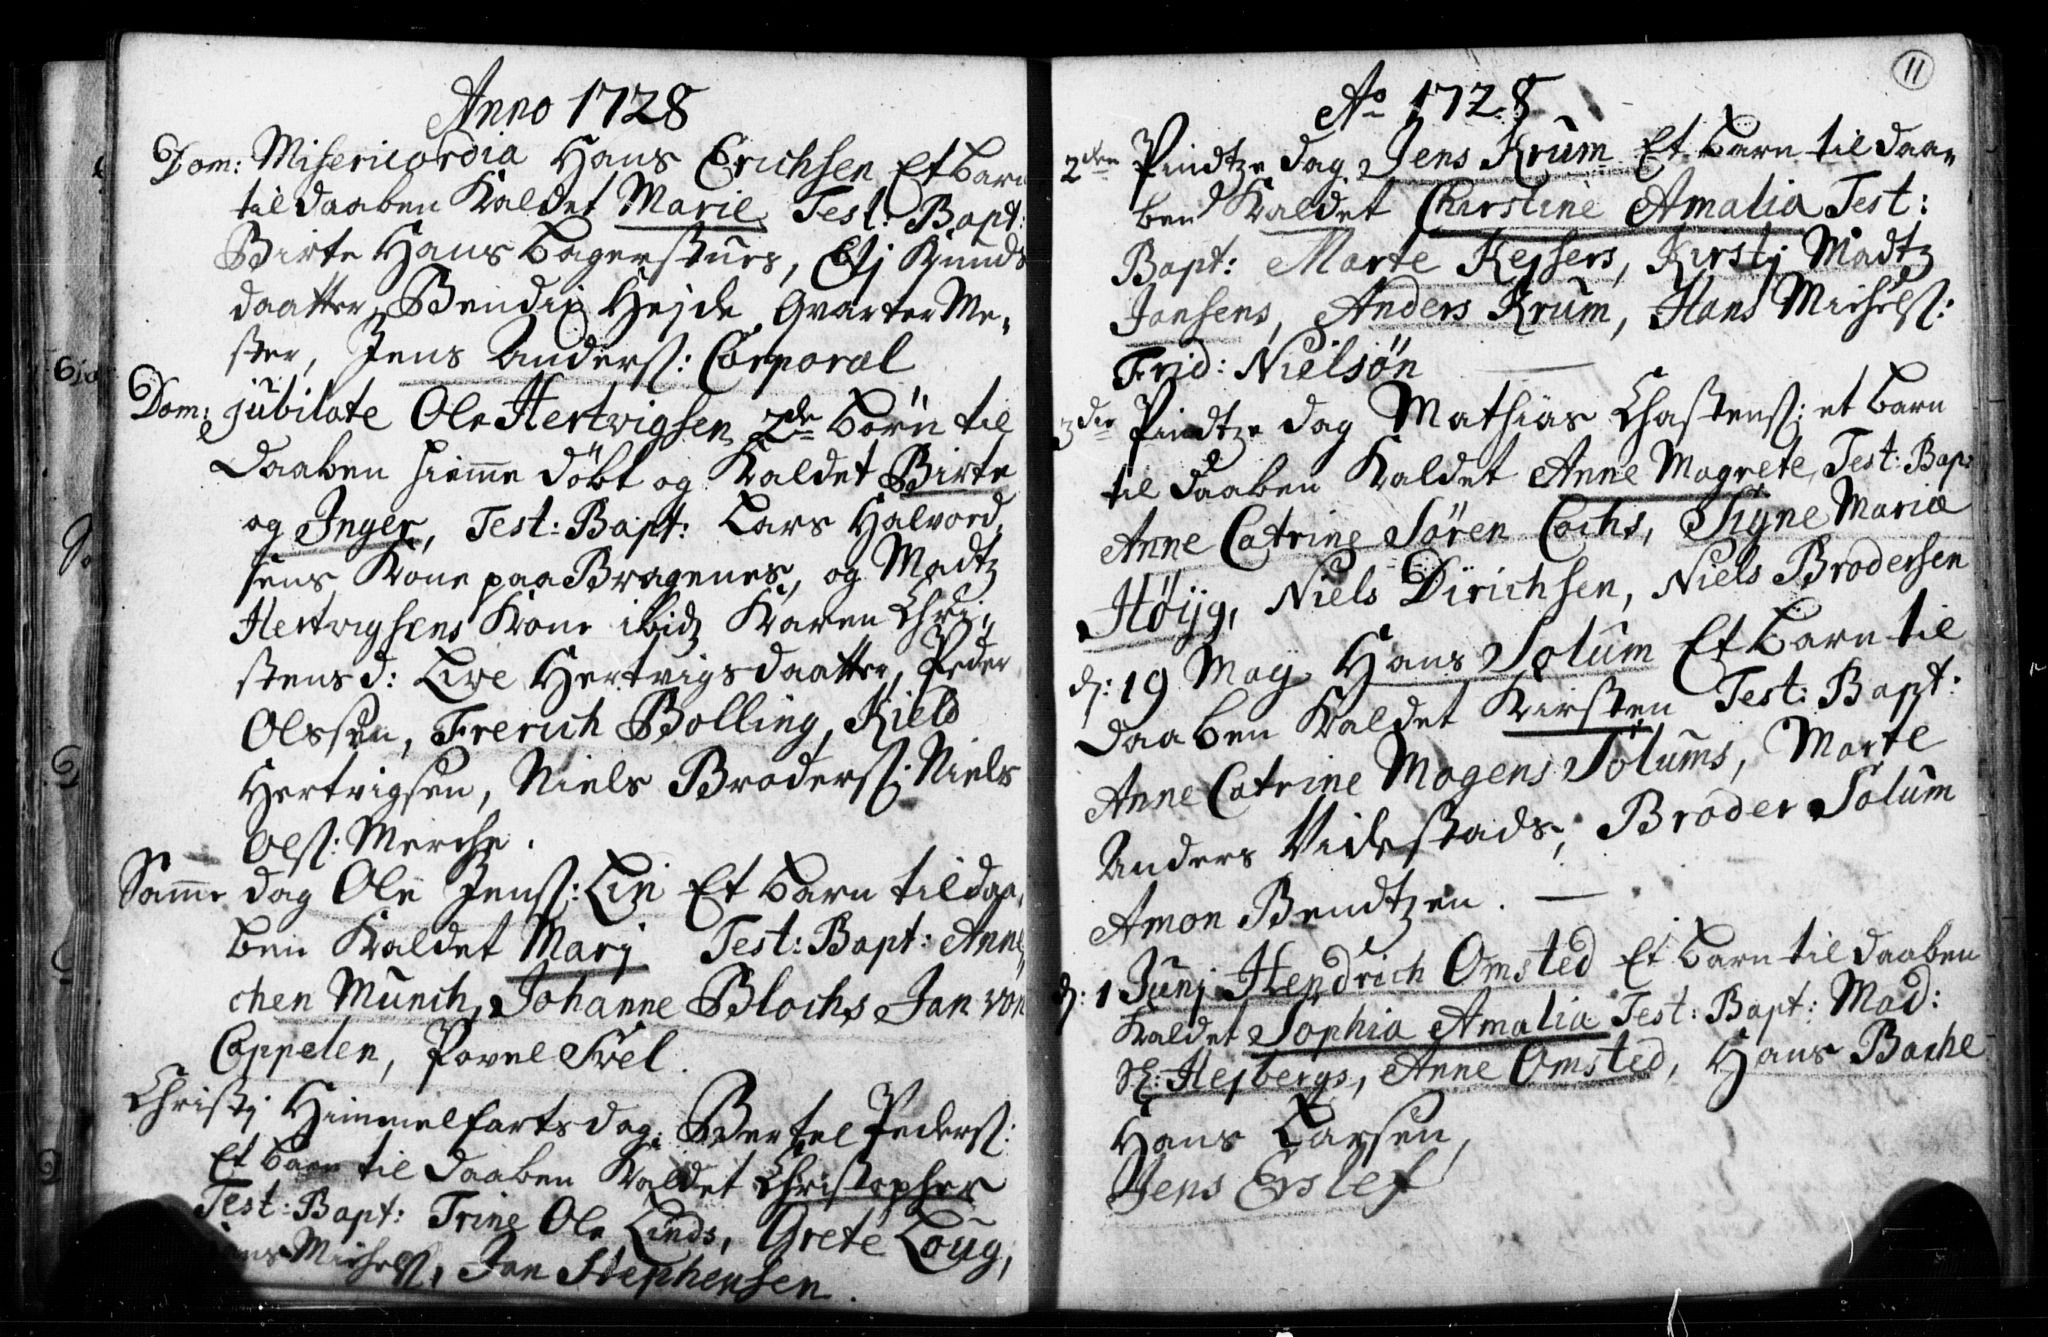 Anno 1728
Dom: Misericordia Hans Erichsen Et barn
til daaben Kaldet Marie. Test: Bapt:
Birte Hans Bagerstues, Elj Knuds
daatter, Bendix Hejde Qvarter Me„
ster, Jens Anders: Corporal
Dom: jubilate Ole Hertvigsen 2de börn til
Daaben hieme döbt og Kaldet Birte
og Inger, Test: Bapt: Lars Halvord„
sens Kone paa Bragenes, og Madtz
Hertvigsens Kone ibid Karen Chri„
stens d: Live Hertvigsdaatter, Peder
Olssen, Frerich Bolling, Kield
Hertvigsen, Niels Broders: Niels
Ols: Merche.
Samme dag Ole Jens: Lin Et barn til daa„
ben Kaldet Marj Test: Bapt: Anne„
chen Munch, Johanne Blochs Jan von
Cappelen, Povel
Christj Himmelfartsdag. Bertel Peders:
Et barn til daaben Kaldet Christopher
Test: Bapt: Trine Ole Linds, Grete Loug,
Michels:, Jan Stephensen.
11
Ao 1728
2den Pindtze dag Jens Krum Et barn til daa„
ben Kaldet Chirstine Amalia Test:
Bapt: Marte Kejsers, Kirstj Madtz
Jansens, Anders Krum, Hans Michels:
Frid: Nielsøn
3die Pindtze dag Mathias Chastens: et barn
til daaben Kaldet Anne Magrete, Test: Bap:
Anne Catrine Søren Cochs, Signe Maria
Höijg, Niels Dirichsen, Niels Brodersen
d: 19 May Hans Solum Et barn til
daaben Kaldet Kirsten Test: Bapt:
Anne Catrine Mogens Solums, Marte
Anders Videstads, Broder Solum
Amon Bendtzen.
d: 1 Junj Hendrich Omsted Et barn til daaben
Kaldet Sophia Amalia Test: Bapt: Mad:
Sl: Hejbergs, Anne Omsted, Hans Bache
Hans Larsen,
Jens Erslef